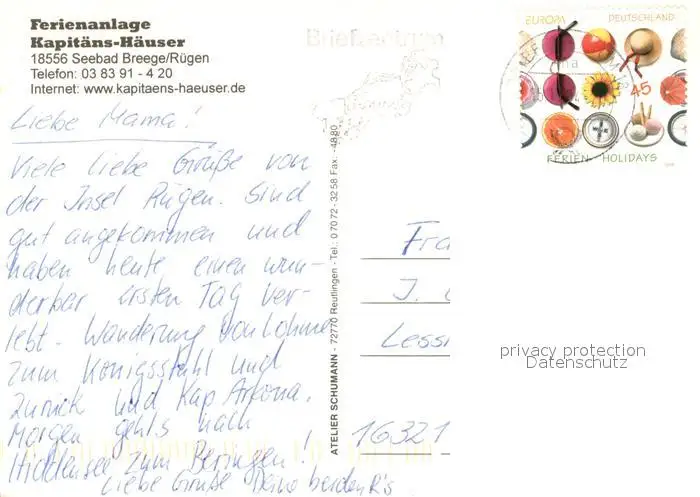 Ferienanlage
Kapitäns-Häuser
18556 Seebad Breege/Rügen
Telefon: 03 83 91 - 4 20
Internet: www.kapitaens-haeuser.de
Liebe Mama!
Viele liebe Grüße von
der Insel Rügen. Sind
gut angekommen und
haben heute einen wun-
derbar ersten Tag ver-
lebt. Wanderung von Lohme
zum Königsstuhl und
zurück und Kap Arkona.
Morgen gehts nach
Hiddensee zum
Liebe Grüße Deine beiden R's
ATELIER SCHUMANN - 72770 Reutlingen - Tel.: 0 70 72 - 32 58 Fax. -48 80
Briefzentrum
EUROPA DEUTSCHLAND
45
FERIEN - HOLIDAYS
Fra
J.
Lessi
16321
privacy protection
Datenschutz